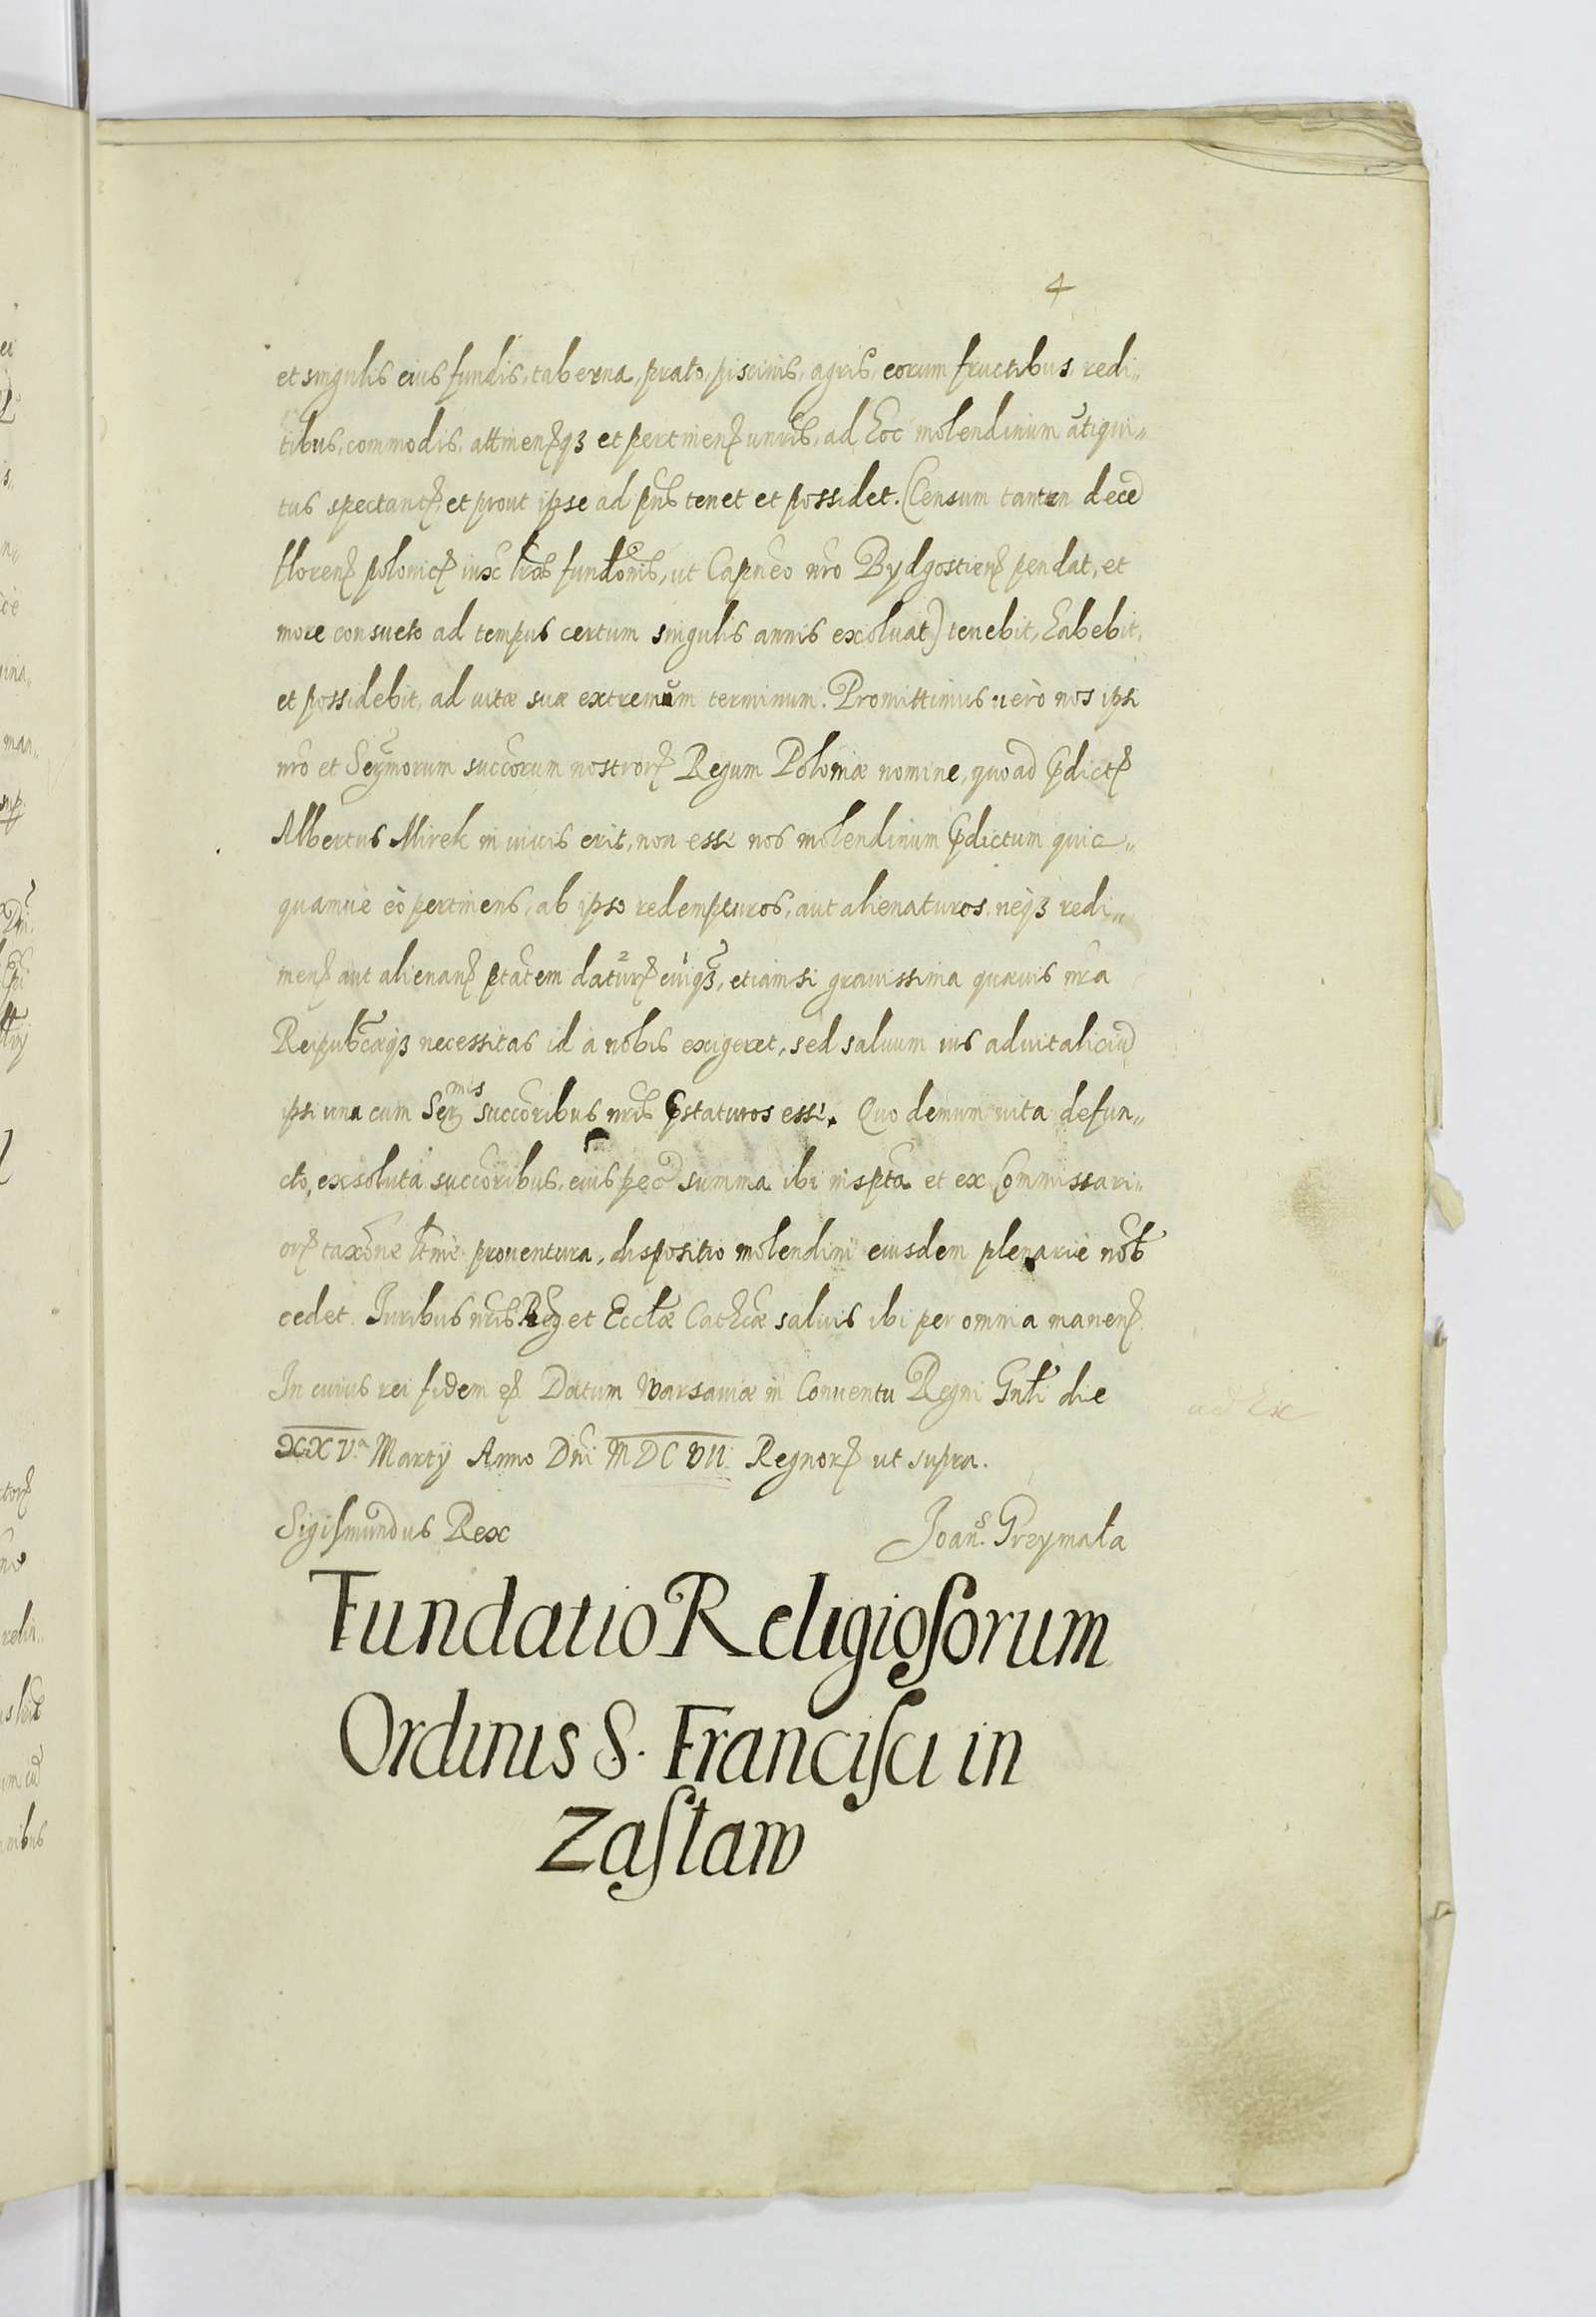 4
et singulis eius fundis, taberna, prato, piscinis, agris, eorum fructibus, redi„
tibus, commodis, attinenȝ qȝ et pertinenȝ univris, ad hoc molendinum ātiqui„
tus spectantȝ, et prout ipse ad pn̄s tenet et possidet. (Censum tamen decē
florenȝ polonicȝ iux̄ lrās fundōnis, ut Capn̄eo nrō Bydgostienȝ pendat, et
more consueto ad tempus certum singulis annis exoluat) tenebit, habebit,
et possidebit, ad uitæ suæ extremūm terminum. Promittimus uerò nos ipsi
nrō et Serm̄orum succōrum nostrorȝ Regum Poloniæ nomine, quoad p̄dictȝ
Albertus Mirek in uiuis erit, non esse nos molendinum p̄dictum quic„
quamuè eò pertinens, ab ipso redempturos, aut alienaturos, neqȝ redi„
menȝ aut alienanȝ ptātem daturȝ cuiqȝ, etiamsi grauissima quæuis nrā
Reipublcæqȝ necessitas id à nobis exigeret, sed saluum ius aduitaliciū
ipsi una cum Serᵐⁱˢ succōribus nrīs p̄staturos esse. Quo demum uita defun„
cto, exsoluta succōribus, eius summa ibi inscpta et ex Commissari„
orȝ taxōne ltmè prouentura, dispositio molendini eiusdem plenariè nōb
cedet. Iuribus nrīs Reg. et Eccłæ Cathcæ saluis ibi per omnia manenȝ.
In cuius rei fidem ȝ Datum Warsauiæ in Conuentu Regni Gnłi die
XXV.ᵃ Martÿ Anno Dn̄i MDCVII. Regnorȝ ut supra.
Sigiſmundus Rex
Joan.ˢ Grzymała
Fundatio Religioſorum
Ordinis S. Franciſci in
Zaſław
ad Ex